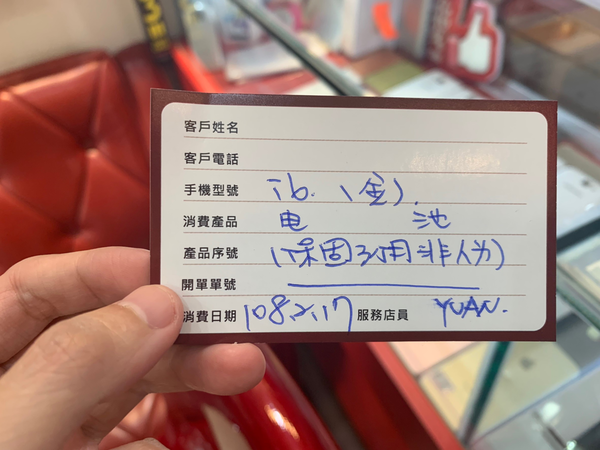 客戶姓名
客戶電話
手機型號 i6. (金).
消費產品 电 池
產品序號 (保固3个用非人为)
開單單號
消費日期 108.2.17 服務店員 YUAN.